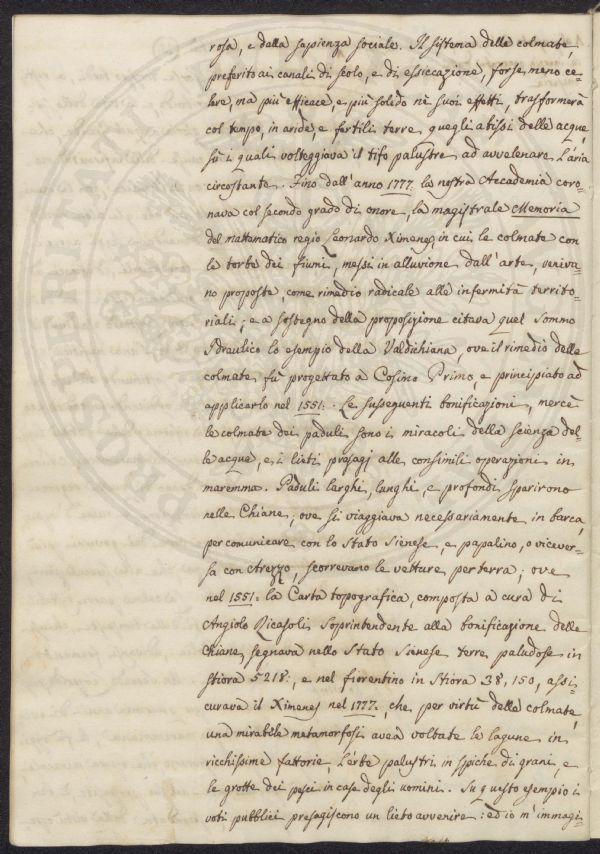 rosa, e dalla sapienza sociale. Il sistema delle colmate,
preferito ai canali di scolo, e di essiccazione, forse meno ce=
lere, ma più efficace, e più solido ne' suoi effetti, trasformerà
col tempo, in aride, e fertili terre quegli abissi delle acque
sù i quali volteggiava il tifo palustre ad avvelenare l'aria
circostante. Fino dall'anno 1777. la nostra Accademia coro=
nava col secondo grado di onore, la magistrale Memoria
del mattematico regio Leonardo Ximenes, in cui le colmate con
le torbe dei fiumi, messi in alluvione dall'arte, veniva=
no proposte, come rimedio radicale alle infermità territo=
riali; e a sostegno della proposizione citava quel sommo
Idraulico lo esempio della Valdichiana, ove il rimedio delle
colmate fù progettato a Cosimo Primo, e principiato ad
applicarlo nel 1551:. Le susseguenti bonificazioni, mercè
le colmate dei paduli sono i miracoli della scienza del=
le acque, e i lieti presagi alle consimili operazioni in
maremma. Paduli larghi, lunghi, e profondi sparirono
nelle Chiane; ove si viaggiava necessariamente in barca,
per comunicare con lo Stato Sienese, e papalino, o vicever=
sa con Arezzo, scorrevano le vetture per terra; ove
nel 1551: la Carta topografica, composta a cura di
Angiolo Ricasoli Soprintendente alla bonificazione delle
Chiane, segnava nello Stato Sienese terre paludose in
Stiora 5218:, e nel fiorentino in Stiora 38,150, assi=
curava il Ximenes nel 1777:, che per virtù delle colmate,
una mirabile metamorfosi avea voltate le lagune in
ricchissime fattorie, l'erbe palustri in spiche di grani, e
le grotte dei pesci in case degli uomini. Su questo esempio i
voti pubblici presagiscono un lieto avvenire: ed io m'immagi=